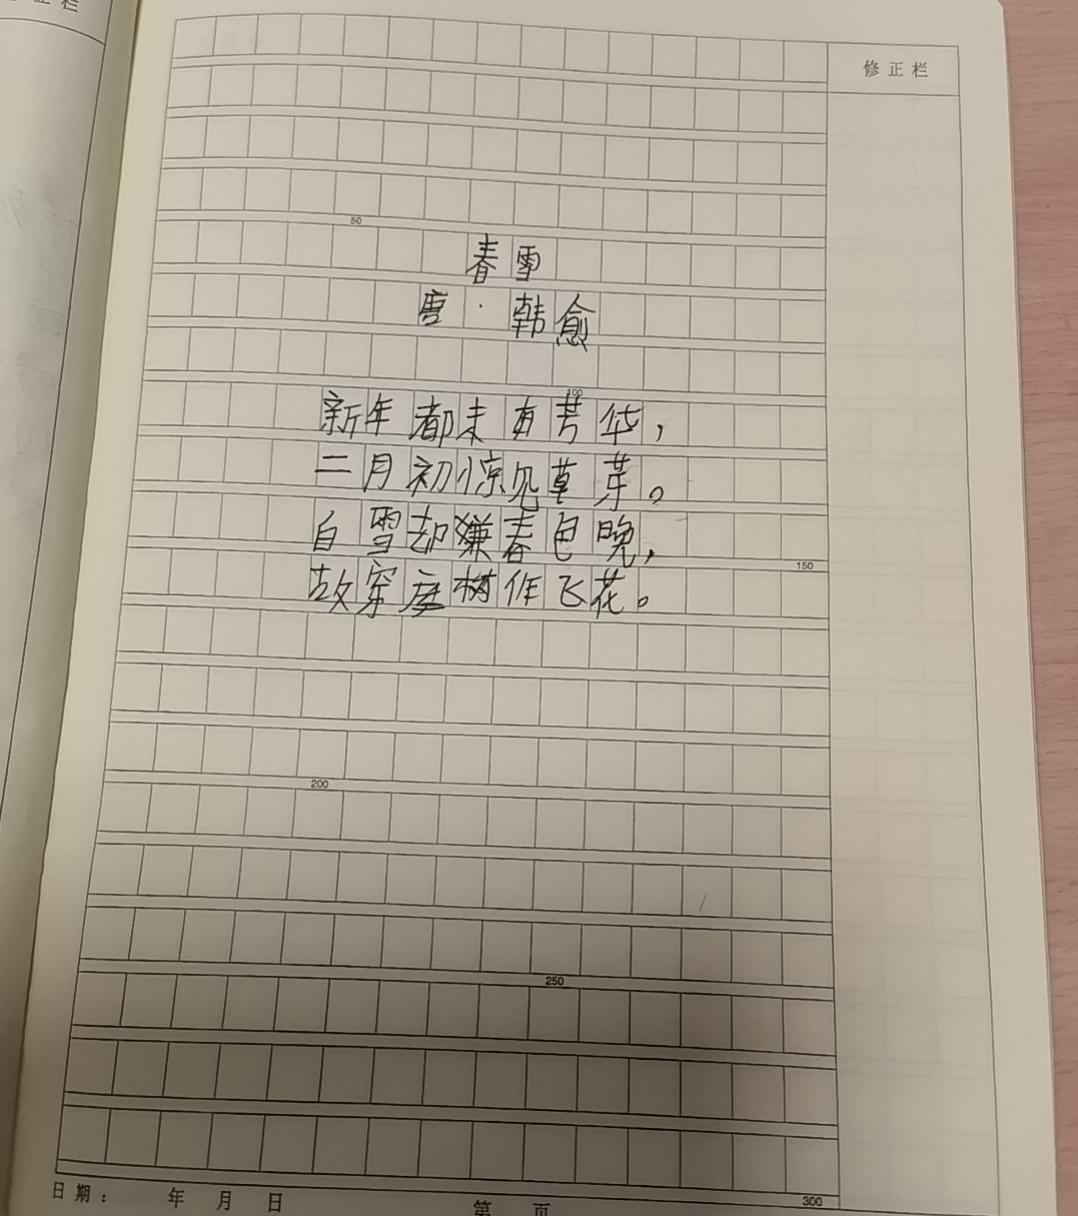 正栏
修正栏
50
春雪
唐·韩愈
100
新年都未有芳华，
二月初惊见草芽。
白雪却嫌春色晚，
150
故穿庭树作飞花。
200
250
300
日期： 年 月 日 第 页